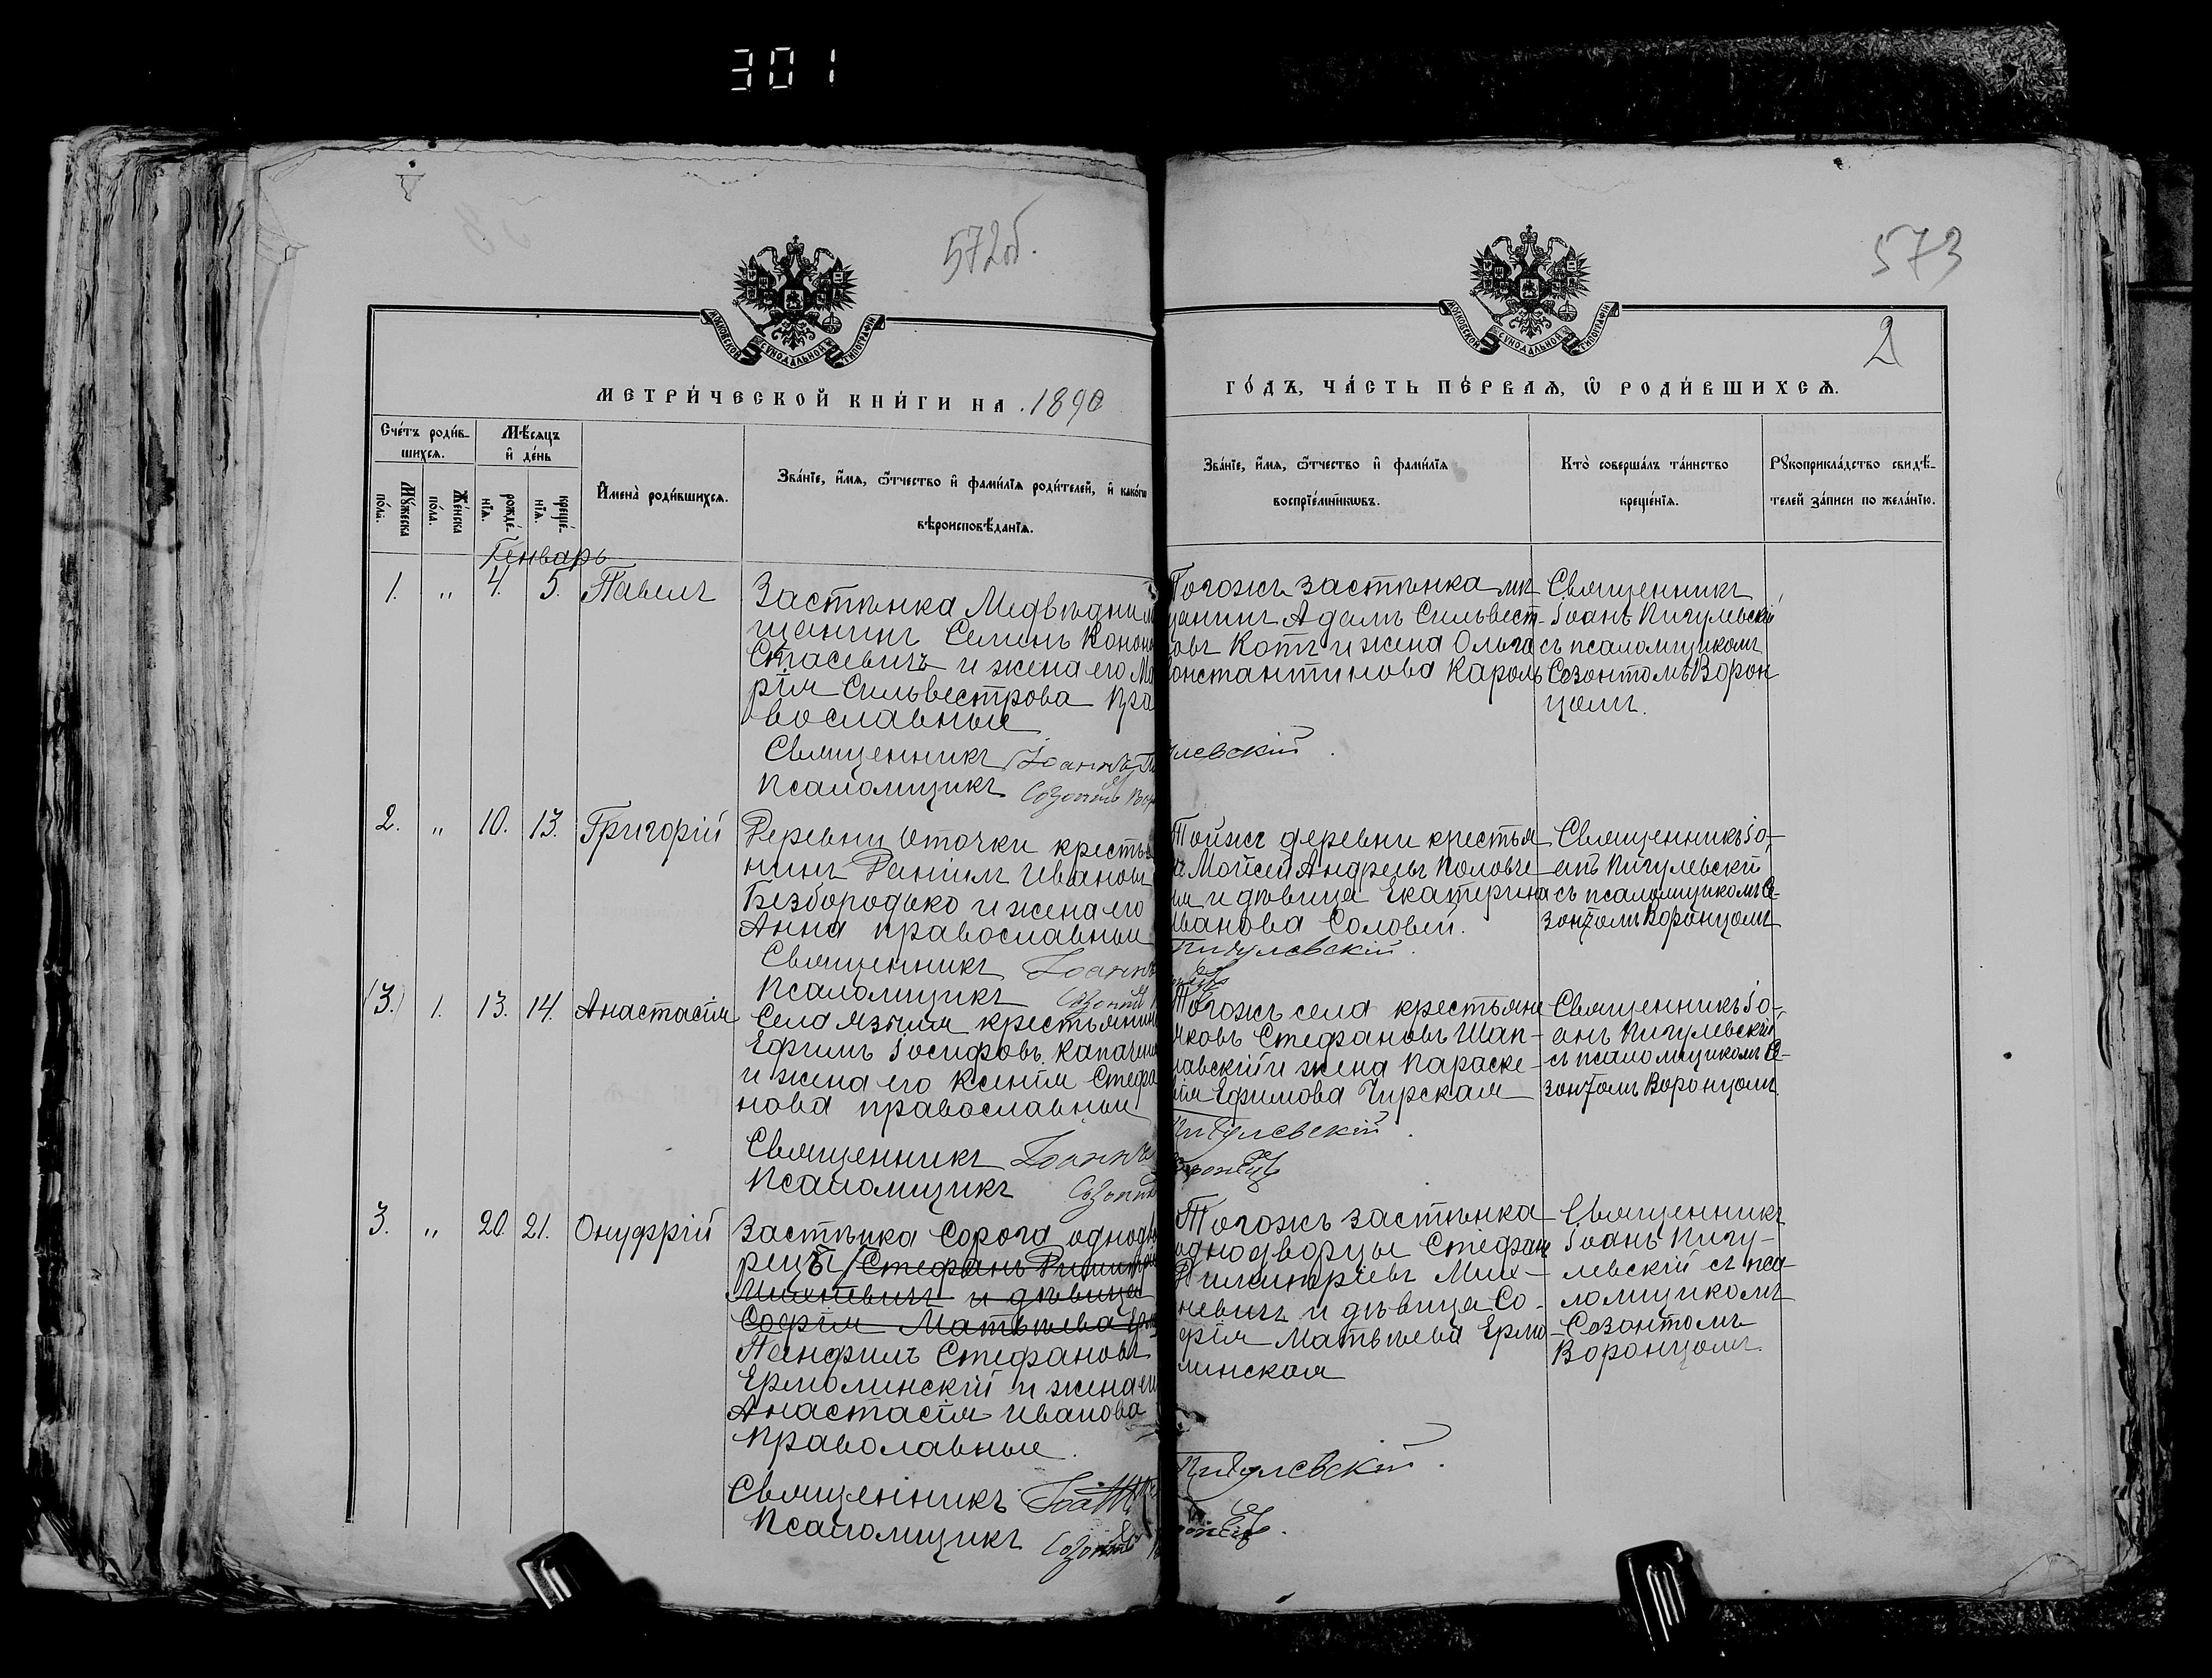 301
572об.
573
2
МОСКОВСКОЙ СѴНОДАЛЬНОЙ ТИПОГРАФІИ
МОСКОВСКОЙ СѴНОДАЛЬНОЙ ТИПОГРАФІИ
МЕТРИ́ЧЕСКОЙ КНИ́ГИ НА 1890
ГО́ДЪ, ЧА́СТЬ ПЕ́РВАѦ, Ѡ҆ РОДИ́ВШИХСѦ.
Сче́тъ роди́в-
шихсѧ.
Мѣ́сѧцъ
и҆ де́нь
Мꙋ́жеска
по́ла.
Же́нска
по́ла.
рожде́-
нїѧ.
креще́-
нїѧ.
И҆мена̀ роди́вшихсѧ.
Зва́нїе, и҆́мѧ, ѻ҆́тчество и҆ фами́лїѧ роди́телей, и҆ како́гѡ
вѣроисповѣ́данїѧ.
Зва́нїе, и҆́мѧ, ѻ҆́тчество и҆ фами́лїѧ
воспрїе́мникѡвъ.
Кто̀ соверша́лъ та́инство
креще́нїѧ.
Рꙋкоприкла́дство свидѣ́-
телей за́писи по жела́нїю.
Генварь
1. " 4. 5. Павелъ
Застѣнка Медвѣдни мѣ
щанинъ Семенъ Конон
Стасевичъ и жена его Ма
рія Сильвестрова пра
вославные
Священникъ Іоаннъ Пи
Псаломщикъ Созонтъ Вор
Тогожъ застѣнка мѣ
щанинъ Адамъ Сильвест-
овъ Котъ и жена Ольга
онстантинова Кароль
улевскій.
Священникъ
Іоанъ Пигулевскій
съ псаломщикомъ
Созонтомъ Ворон
цомъ.
2. " 10. 13. Григорій
Деревни Оточки крестья
нинъ Даніилъ Ивановъ
Безбородько и жена его
Анна православные
Священникъ Іоаннъ
Псаломщикъ Созонтъ
Тойжъ деревни крестья
Мойсей Андреевъ Половче
и дѣвица Екатерина
Иванова Соловей.
Пигулевскій.
Священникъ Іо-
анъ Пигулевскій
съ псаломщикомъ Со-
зонтомъ Воронцомъ
(3.) 1. 13. 14. Анастасія
Села Языля крестьянин
Ефимъ Іосифовъ
и жена его Ксенія Стефа
нова православные
Священникъ Іоаннъ
Псаломщикъ Созонтъ
Тогожъ села крестьяне
Яковъ Стефановъ Шап-
лавскій и жена Параске-
вія Ефимова Чирская
Пигулевскій.
Воронецъ
Священникъ Іо-
анъ Пигулевскій
съ псаломщикомъ Со-
зонтомъ Воронцомъ.
3. " 20. 21. Онуфрій
Застѣнка Сорога однодво
рецъ Стефанъ Димитрі
Михневичъ и дѣвица
Софія Матвѣева Ермо
Панфилъ Стефановъ
Ермолинскій и жена его
Анастасія Иванова
праволавные.
Священникъ Іоаннъ
Псаломщикъ Созонтъ
Тогожъ застѣнка
однодворцы Стефанъ
Димитріевъ Мих-
невичъ и дѣвица Со-
фія Матвѣева Ермо-
линская
Пигулевскій.
Воронецъ.
Священникъ
Іоанъ Пигу-
левскій съ пса-
ломщикомъ
Созонтомъ
Воронцомъ.